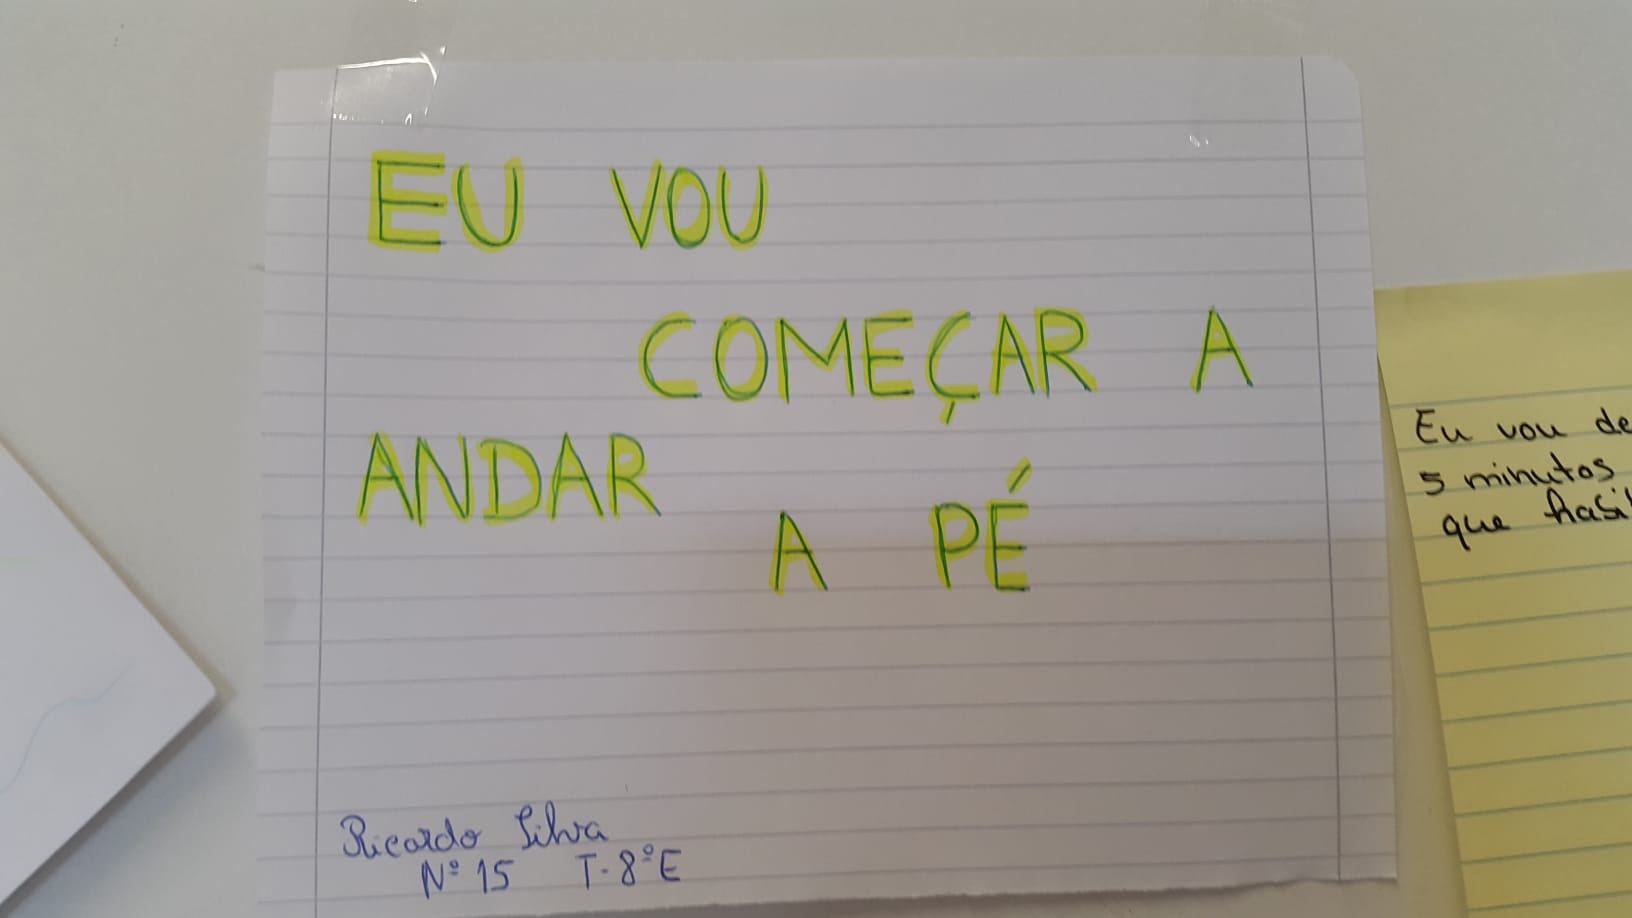 EU VOU
COMEÇAR A
ANDAR
A PÉ
Ricardo Silva
Nº 15 T-8ºE
Eu vou de
5 minutos
que